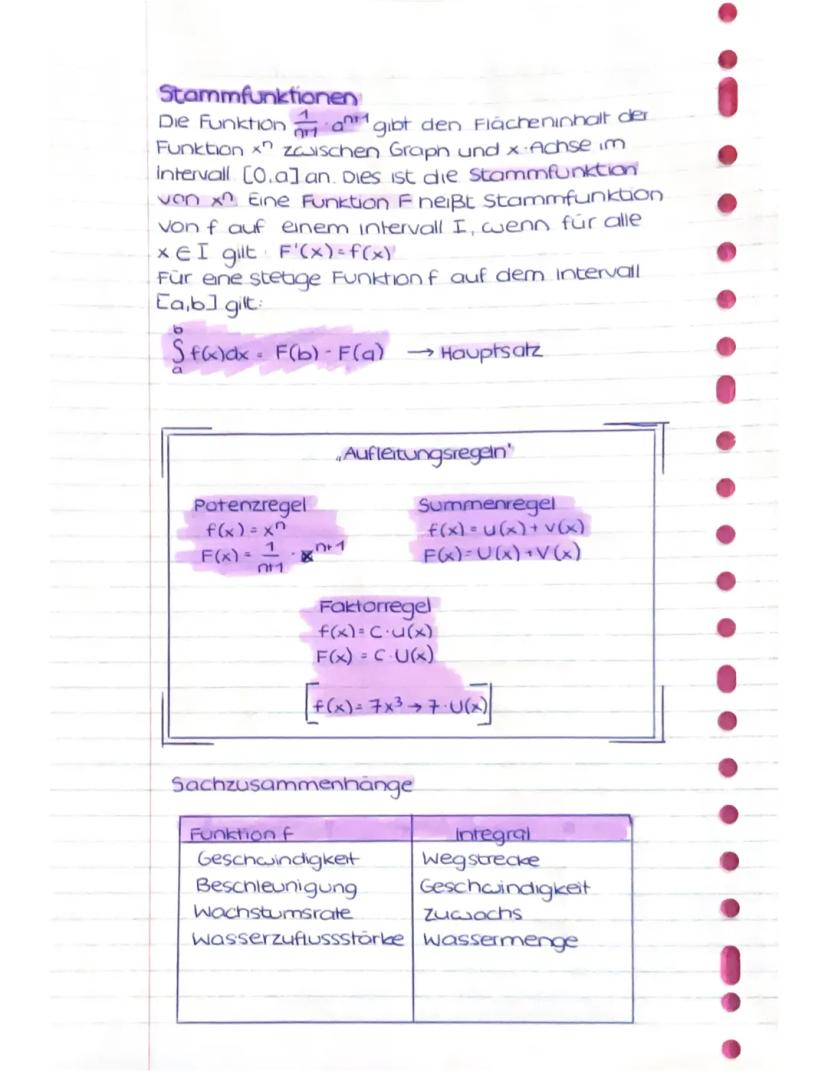 Stammfunktionen
Die Funktion 1/n+1 · a^n+1 gibt den Flächeninhalt der
Funktion x^n zwischen Graph und x-Achse im
Intervall [0,a] an. Dies ist die Stammfunktion
von x^n. Eine Funktion F heißt Stammfunktion
von f auf einem intervall I, wenn für alle
x ∈ I gilt: F'(x)=f(x)
Für eine stetige Funktion f auf dem intervall
[a,b] gilt:
b
∫ f(x)dx = F(b) - F(a) → Hauptsatz
a
„Aufleitungsregeln"
Potenzregel
f(x) = x^n
F(x) = 1/n+1 · x^n+1
Summenregel
f(x) = u(x) + v(x)
F(x) = U(x) + V(x)
Faktorregel
f(x) = C·u(x)
F(x) = C·U(x)
[f(x) = 7x³ → 7·U(x)]
Sachzusammenhänge
Funktion f Integral
Geschwindigkeit Wegstrecke
Beschleunigung Geschwindigkeit
Wachstumsrate Zuwachs
Wasserzuflussstärke Wassermenge